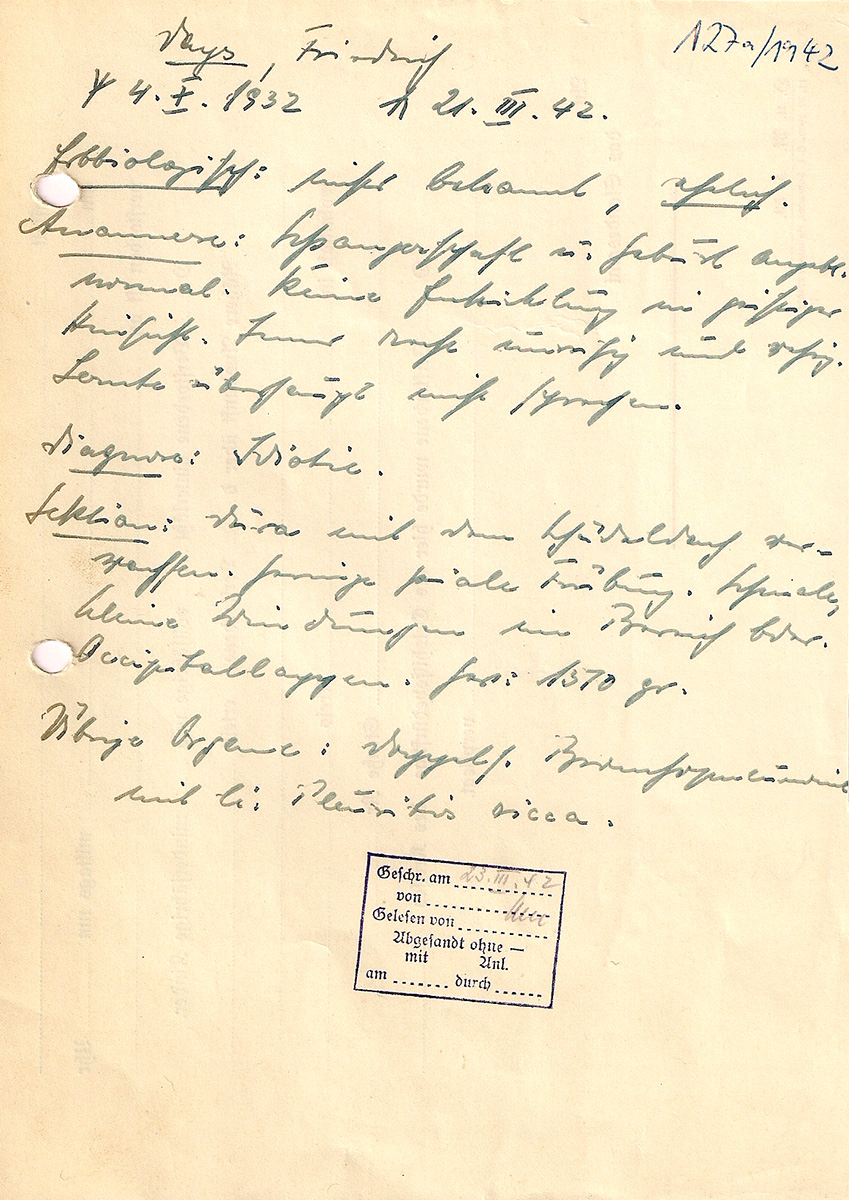 127a/1942
Days, Friedrich
Ƴ 4. X. 1932 ⅄ 21. III. 42.
Erbbiologisch: nichts bekannt, ehelich.
Anamnese: Schwangerschaft u. Geburt angebl.
normal. Keine Entwicklung in geistiger
Hinsicht. Immer sehr unruhig und
Lernte überhaupt nicht sprechen.
Diagnose: Idiotie.
Sektion: Dura mit dem Schädeldach ver-
wachsen. Geringe piale Trübung. Schmale,
kleine Windungen im Bereich bder.
Occipitallappen. Gew: 1370 gr.
Übrige Organe: Doppels. Bronchopneumonie
mit li. Pleuritis sicca.
Geschr. am 23. III. 42
von
Gelesen von
Abgesandt ohne —
mit Anl.
am durch